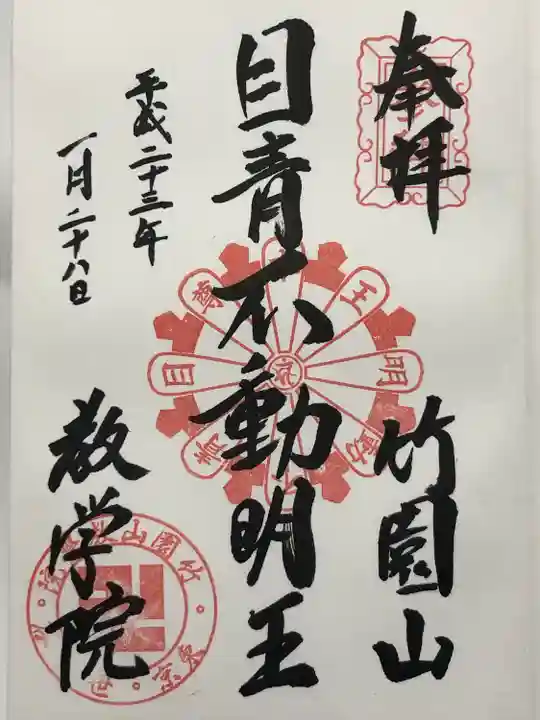 奉拝
竹園山
目青不動明王
平成二十三年
一月二十八日
教学院
目青不動明王尊
竹園山
東京